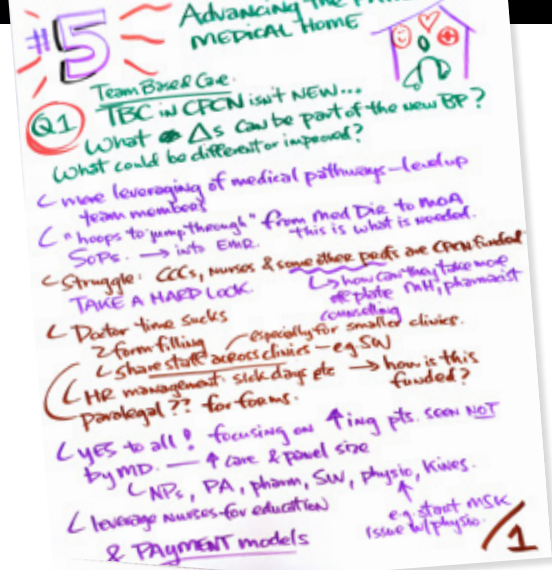 #5
Advancing the
MEDICAL HOME
Team Based Care.
Q1 TBC in CPCN isn't NEW...
What Δs can be part of the new BP?
What could be different or improved?
more leveraging of medical pathways - level up
team members
"hoops to jump through" from Med Dir to MOA
SOPs. → into EMR. this is what is needed.
Struggle: CCCs, nurses & some other profs are CPCN funded
TAKE A HARD LOOK.
how can they take more
off plate MH, pharmacist
counselling
Doctor time sucks
2 form filling especially for smaller clinics.
share staff across clinics - eg SW
HR management. sick days etc → how is this
funded?
paralegal ?? for forms.
YES to all! focusing on ↑ing pts. seen NOT
by MD. — ↑ care & panel size
NPs, PA, pharm, SW, physio, Kines.
leverage nurses for education
e.g. start MSK
issue w/ physio.
& PAYMENT models
/1